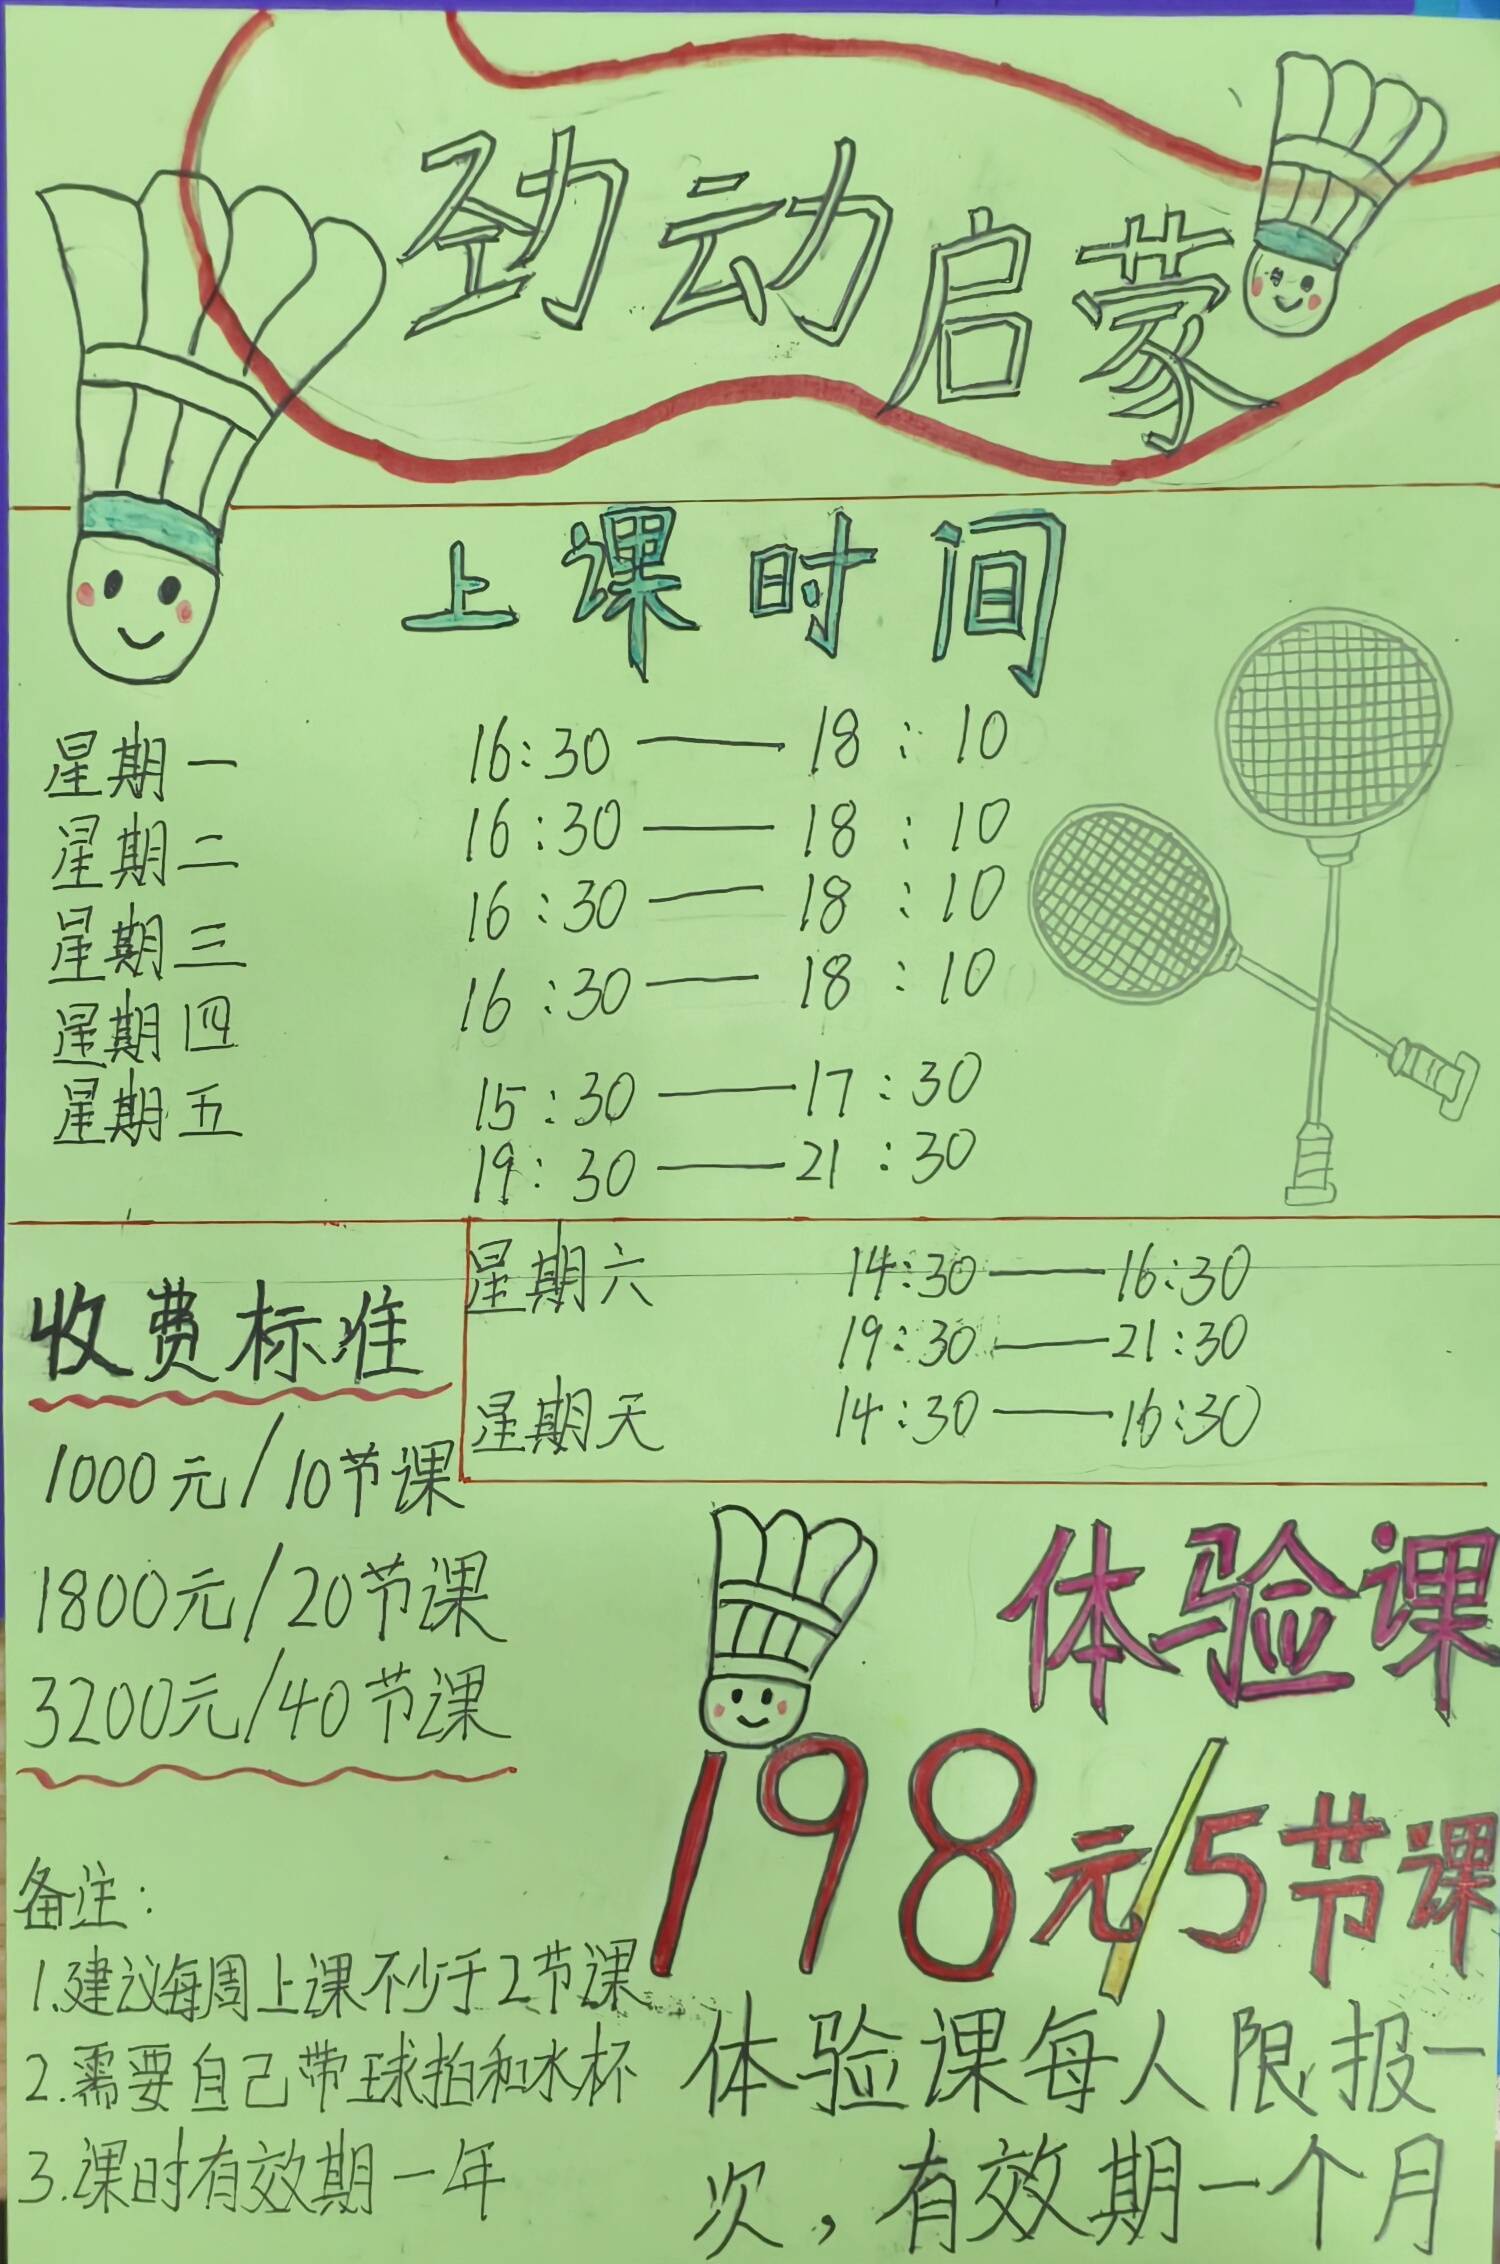 劲动启蒙
上课时间
星期一 16:30——18:10
星期二 16:30——18:10
星期三 16:30——18:10
星期四 16:30——18:10
星期五 15:30——17:30
19:30——21:30
星期六 14:30——16:30
19:30——21:30
星期天 14:30——16:30
收费标准
1000元/10节课
1800元/20节课
3200元/40节课
备注:
1.建议每周上课不少于2节课
2.需要自己带球拍和水杯
3.课时有效期一年
体验课
198元/5节课
体验课每人限报一
次,有效期一个月